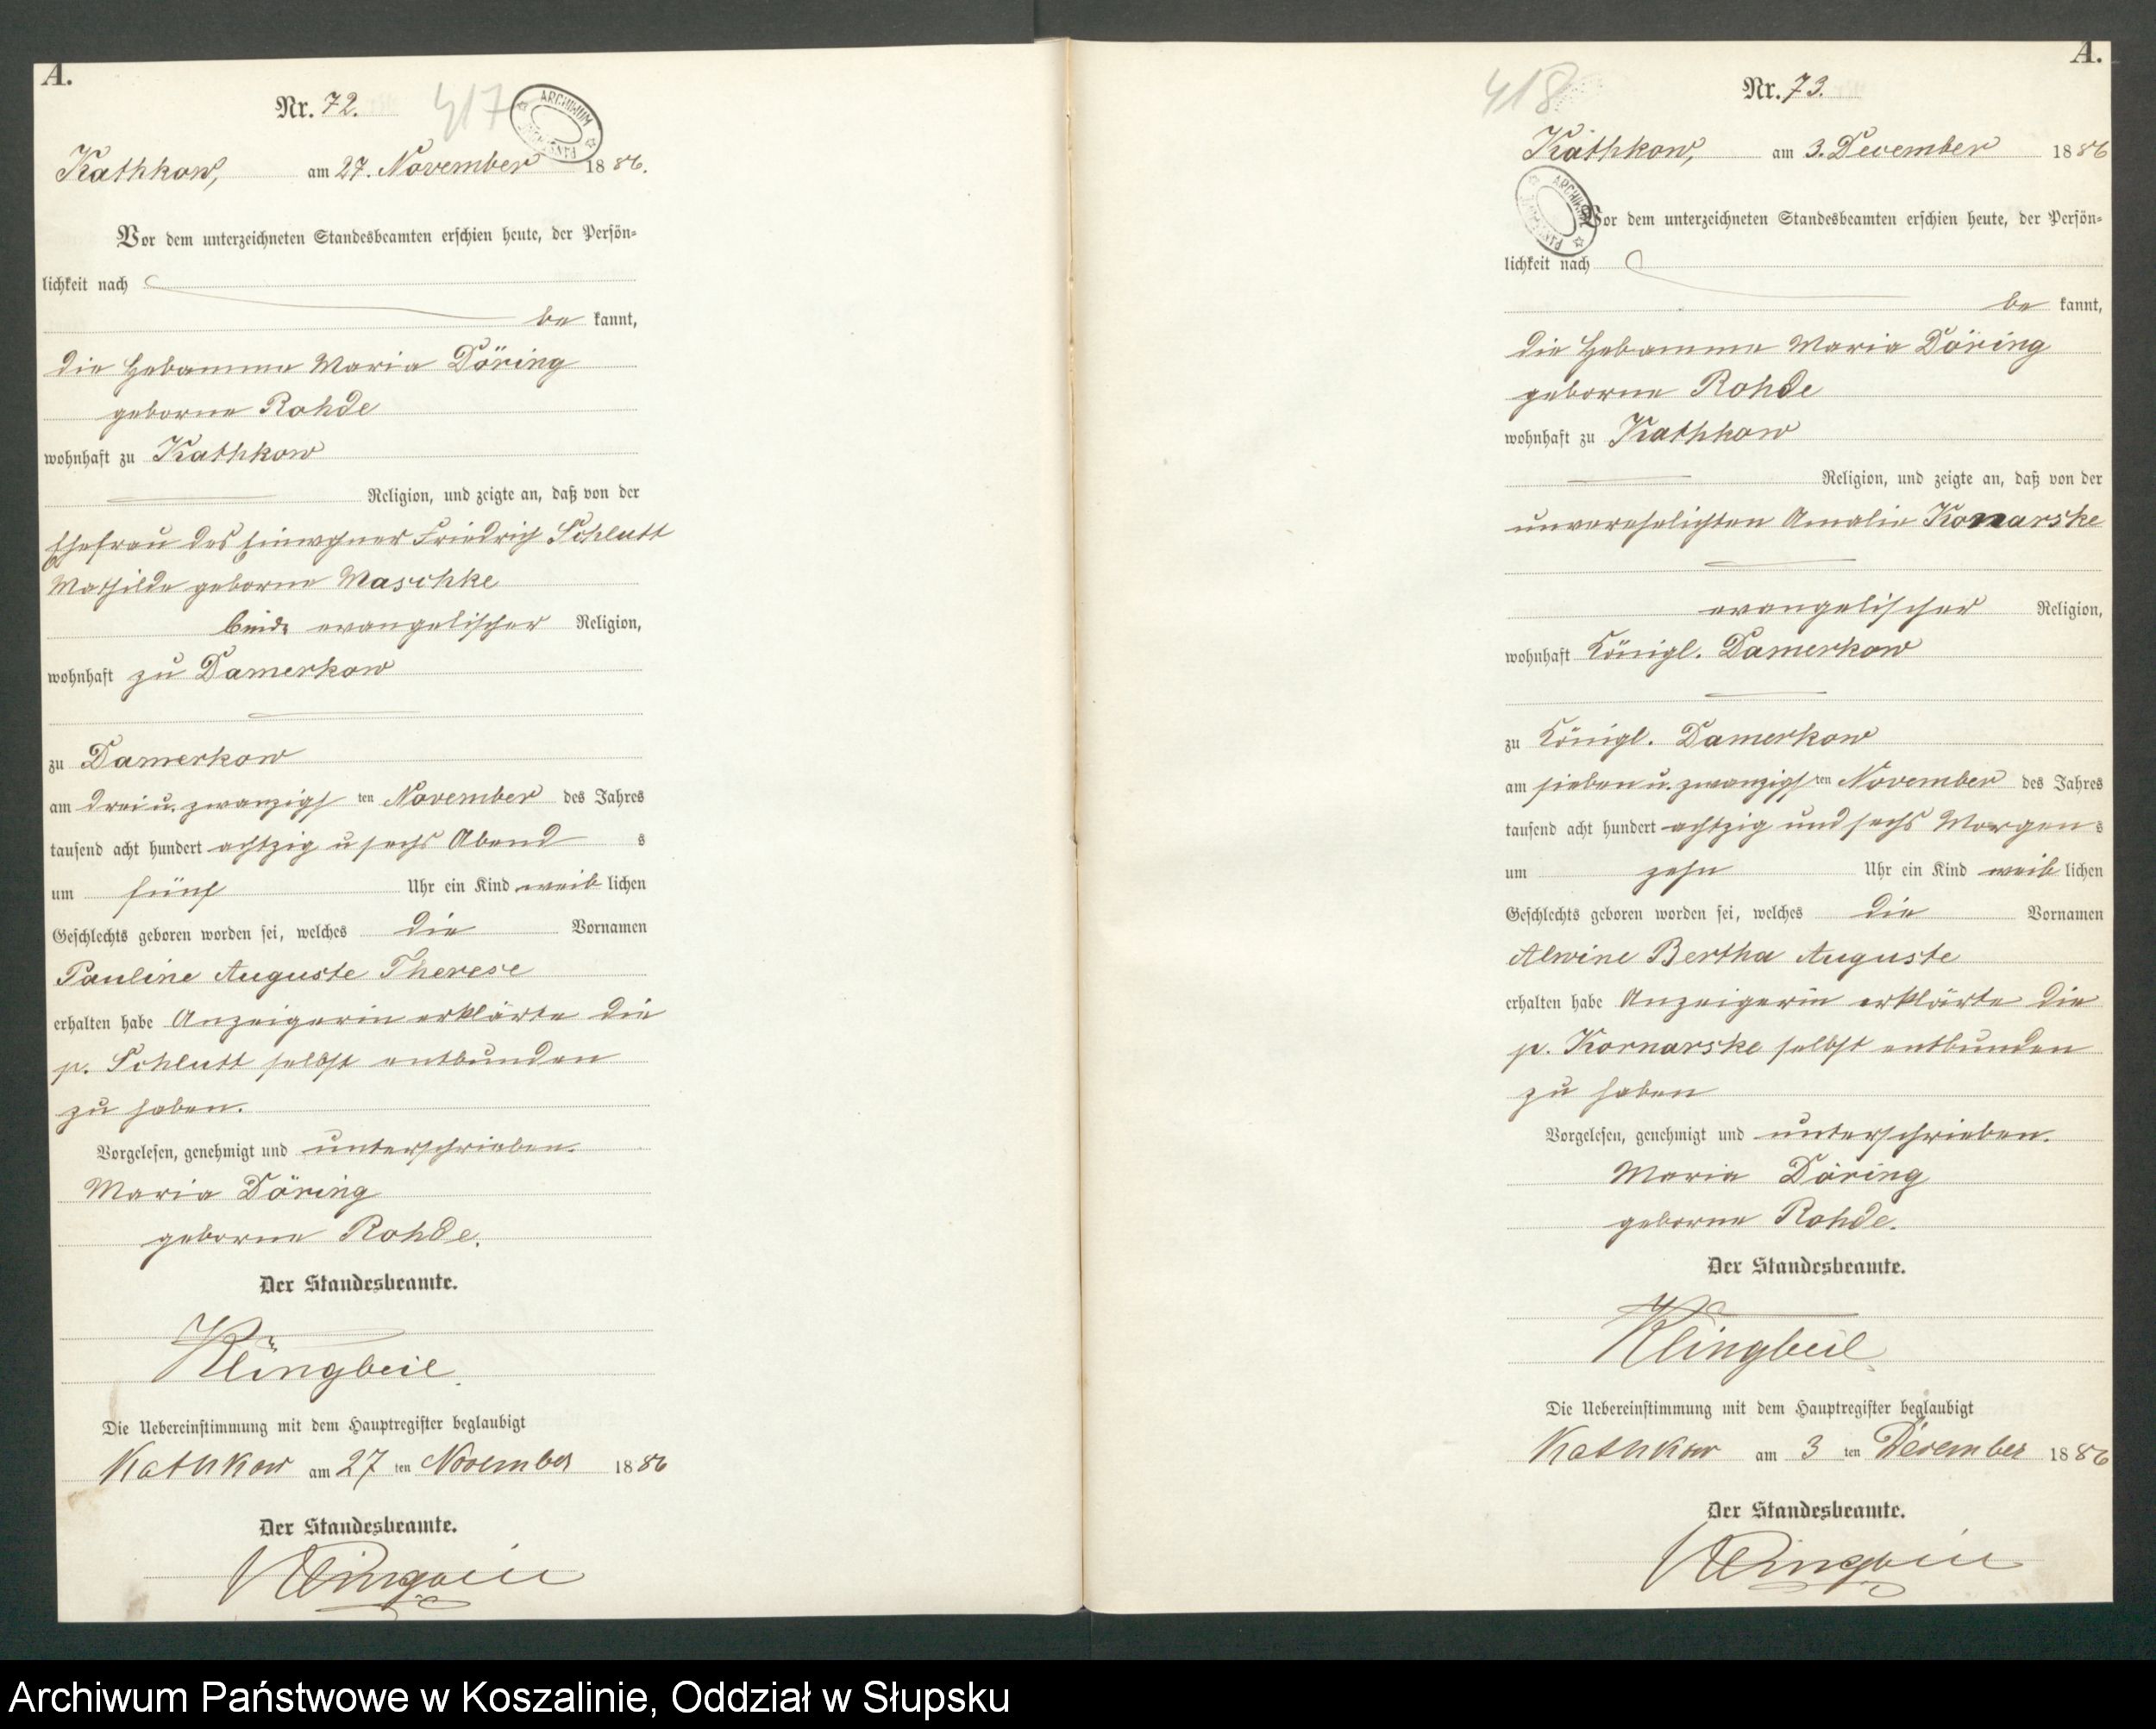 A.
Nr. 72.
417
ARCHIWUM
Kathkow, am 27. November 1886.
Vor dem unterzeichneten Standesbeamten erschien heute, der Persön-
lichkeit nach
be kannt,
die Hebamme Maria Döring
geborne Rohde
wohnhaft zu Kathkow
Religion, und zeigte an, daß von der
Ehefrau des Einwohner Friedrich Schlutt
Mathilde geborne Maschke
beide evangelischer Religion,
wohnhaft zu Damerkow
zu Damerkow
am drei u. zwanzigs ten November des Jahres
tausend acht hundert achtzig u sechs Abend s
um fünf Uhr ein Kind weib lichen
Geschlechts geboren worden sei, welches die Vornamen
Pauline Auguste Therese
erhalten habe Anzeigerin erklärte die
p. Schlutt selbst entbunden
zu haben.
Vorgelesen, genehmigt und unterschrieben.
Maria Döring
geborne Rohde.
Der Standesbeamte.
Klingbeil
Die Uebereinstimmung mit dem Hauptregister beglaubigt
Kathkow am 27 ten November 1886
Der Standesbeamte.
Klingbeil
A.
Nr. 73.
418
Kathkow, am 3. December 1886
ARCHIWUM
Vor dem unterzeichneten Standesbeamten erschien heute, der Persön-
lichkeit nach
be kannt,
die Hebamme Maria Döring
geborne Rohde
wohnhaft zu Kathkow
Religion, und zeigte an, daß von der
unverehelichten Amalie Konarske
evangelischer Religion,
wohnhaft Königl. Damerkow
zu Königl. Damerkow
am sieben u. zwanzigs ten November des Jahres
tausend acht hundert achtzig und sechs Morgen s
um zehn Uhr ein Kind weib lichen
Geschlechts geboren worden sei, welches die Vornamen
Alwine Bertha Auguste
erhalten habe Anzeigerin erklärte die
p. Kornarske selbst entbunden
zu haben
Vorgelesen, genehmigt und unterschrieben.
Maria Döring
geborne Rohde.
Der Standesbeamte.
Klingbeil
Die Uebereinstimmung mit dem Hauptregister beglaubigt
Kathkow am 3 ten December 1886
Der Standesbeamte.
Klingbeil
Archiwum Państwowe w Koszalinie, Oddział w Słupsku